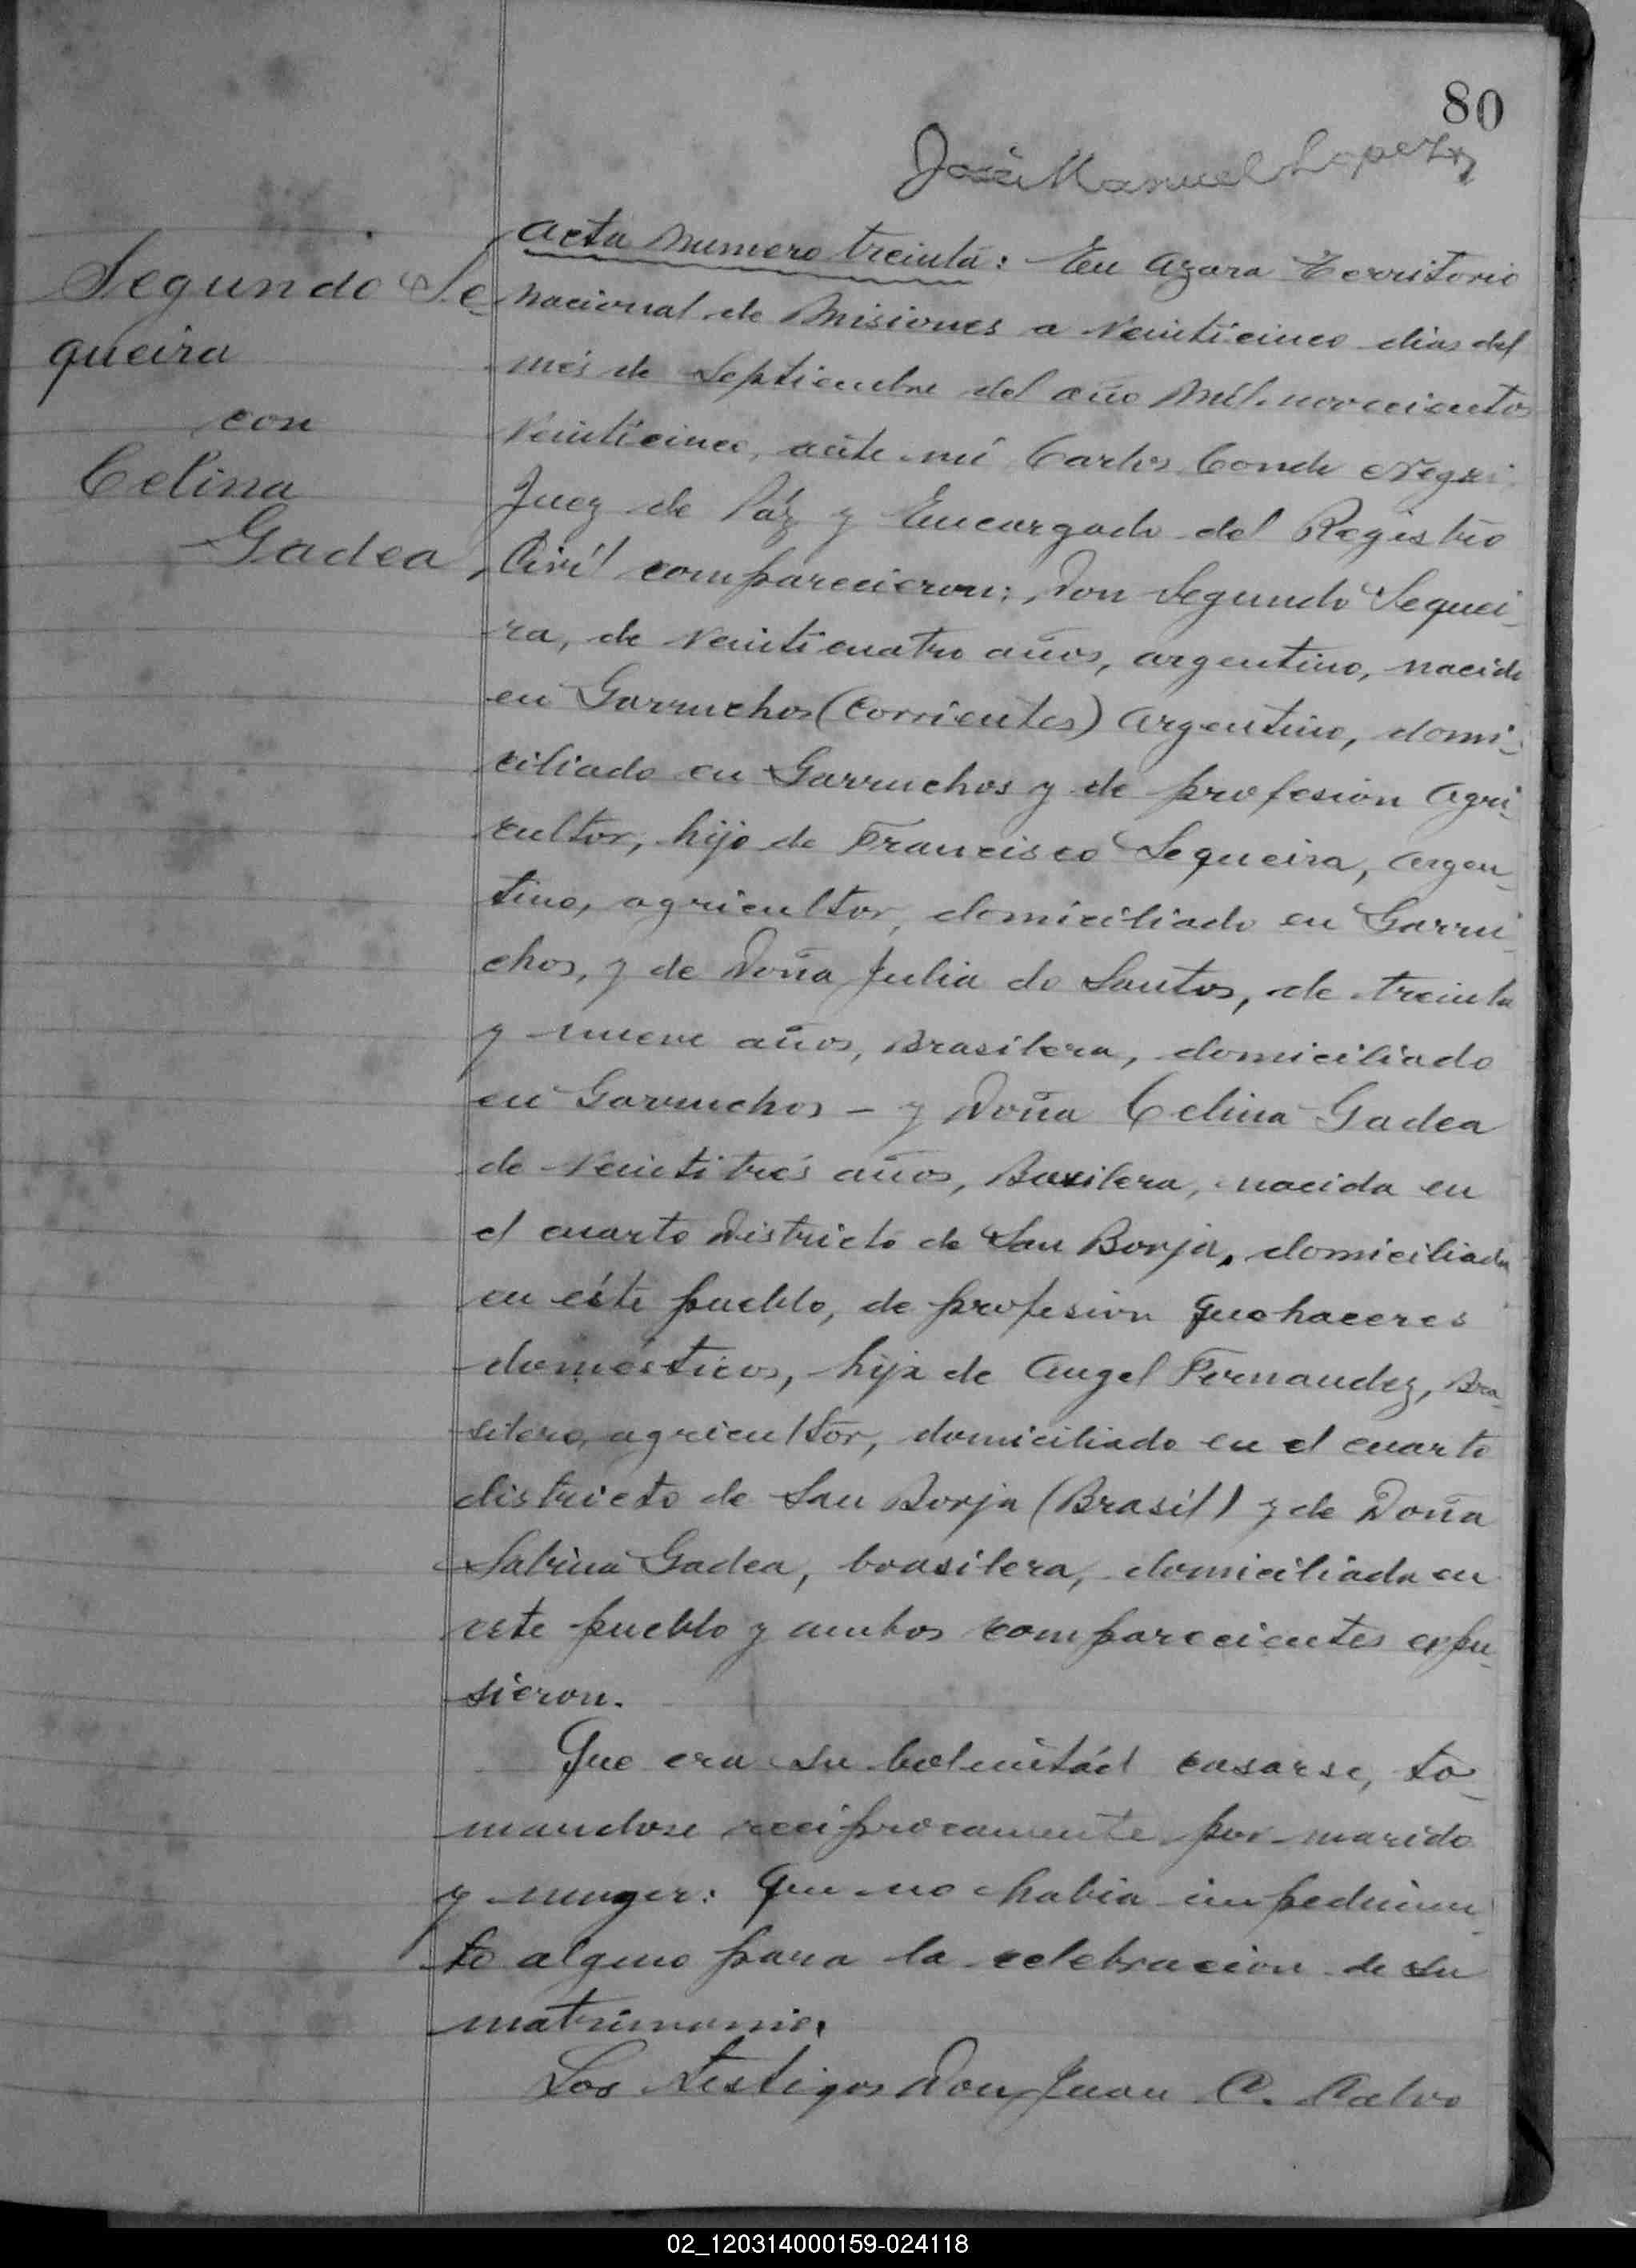 80
José Manuel Lopez
Segundo Se-
queira
con
Celina
Gadea
Acta Numero treinta: En Azara Territorio
Nacional de Misiones a Veinticinco dias del
més de Septiembre del año Mil novecientos
Veinticinco, ante mi Carlos Conde Negri
Juez de Páz y Encargado del Registro
Civíl comparecieron; Don Segundo Sequei-
ra, de Veinticuatro años, argentino, nacido
en Garruchos (Corrientes) Argentino, domi-
ciliado en Garruchos y de profesion Agri-
cultor, hijo de Francisco Sequeira, Argen-
tino, agricultor, domiciliado en Garru-
chos, y de Doña Julia do Santos, de treinta
y nueve años, Brasilera, domiciliado
en Garruchos - y Doña Celina Gadea
de Veintitrés años, Brasilera, nacida en
el cuarto Districto de San Borja, domiciliada
en éste pueblo, de profesion quehaceres
domésticos, hija de Angel Fernandez, Bra-
silero, agricultor, domiciliado en el cuarto
districto de San Borja (Brasil) y de Doña
Sabina Gadea, brasilera, domiciliada en
este pueblo y ambos comparecientes expu-
sieron.
Que era su boluntád casarse, to-
mandose reciprocamente por marido
y muger: Que no habia impedimen-
to alguno para la celebracion de su
matrimonio.
Los Testigos Don Juan C. Calvo
02_120314000159-024118